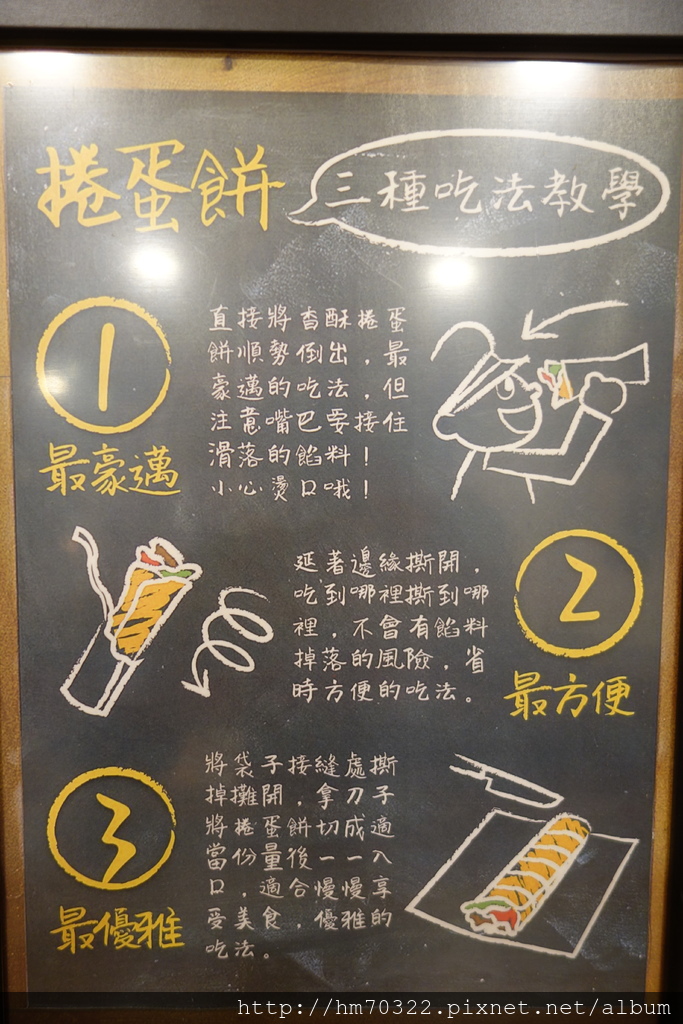 捲蛋餅
三種吃法教學
1
最豪邁
直接將香酥捲蛋
餅順勢倒出，最
豪邁的吃法，但
注意嘴巴要接住
滑落的餡料！
小心燙口哦！
2
最方便
延著邊緣撕開，
吃到哪裡撕到哪
裡，不會有餡料
掉落的風險，省
時方便的吃法。
3
最優雅
將袋子接縫處撕
掉攤開，拿刀子
將捲蛋餅切成適
當份量後一一入
口，適合慢慢享
受美食，優雅的
吃法。
http://hm70322.pixnet.net/album